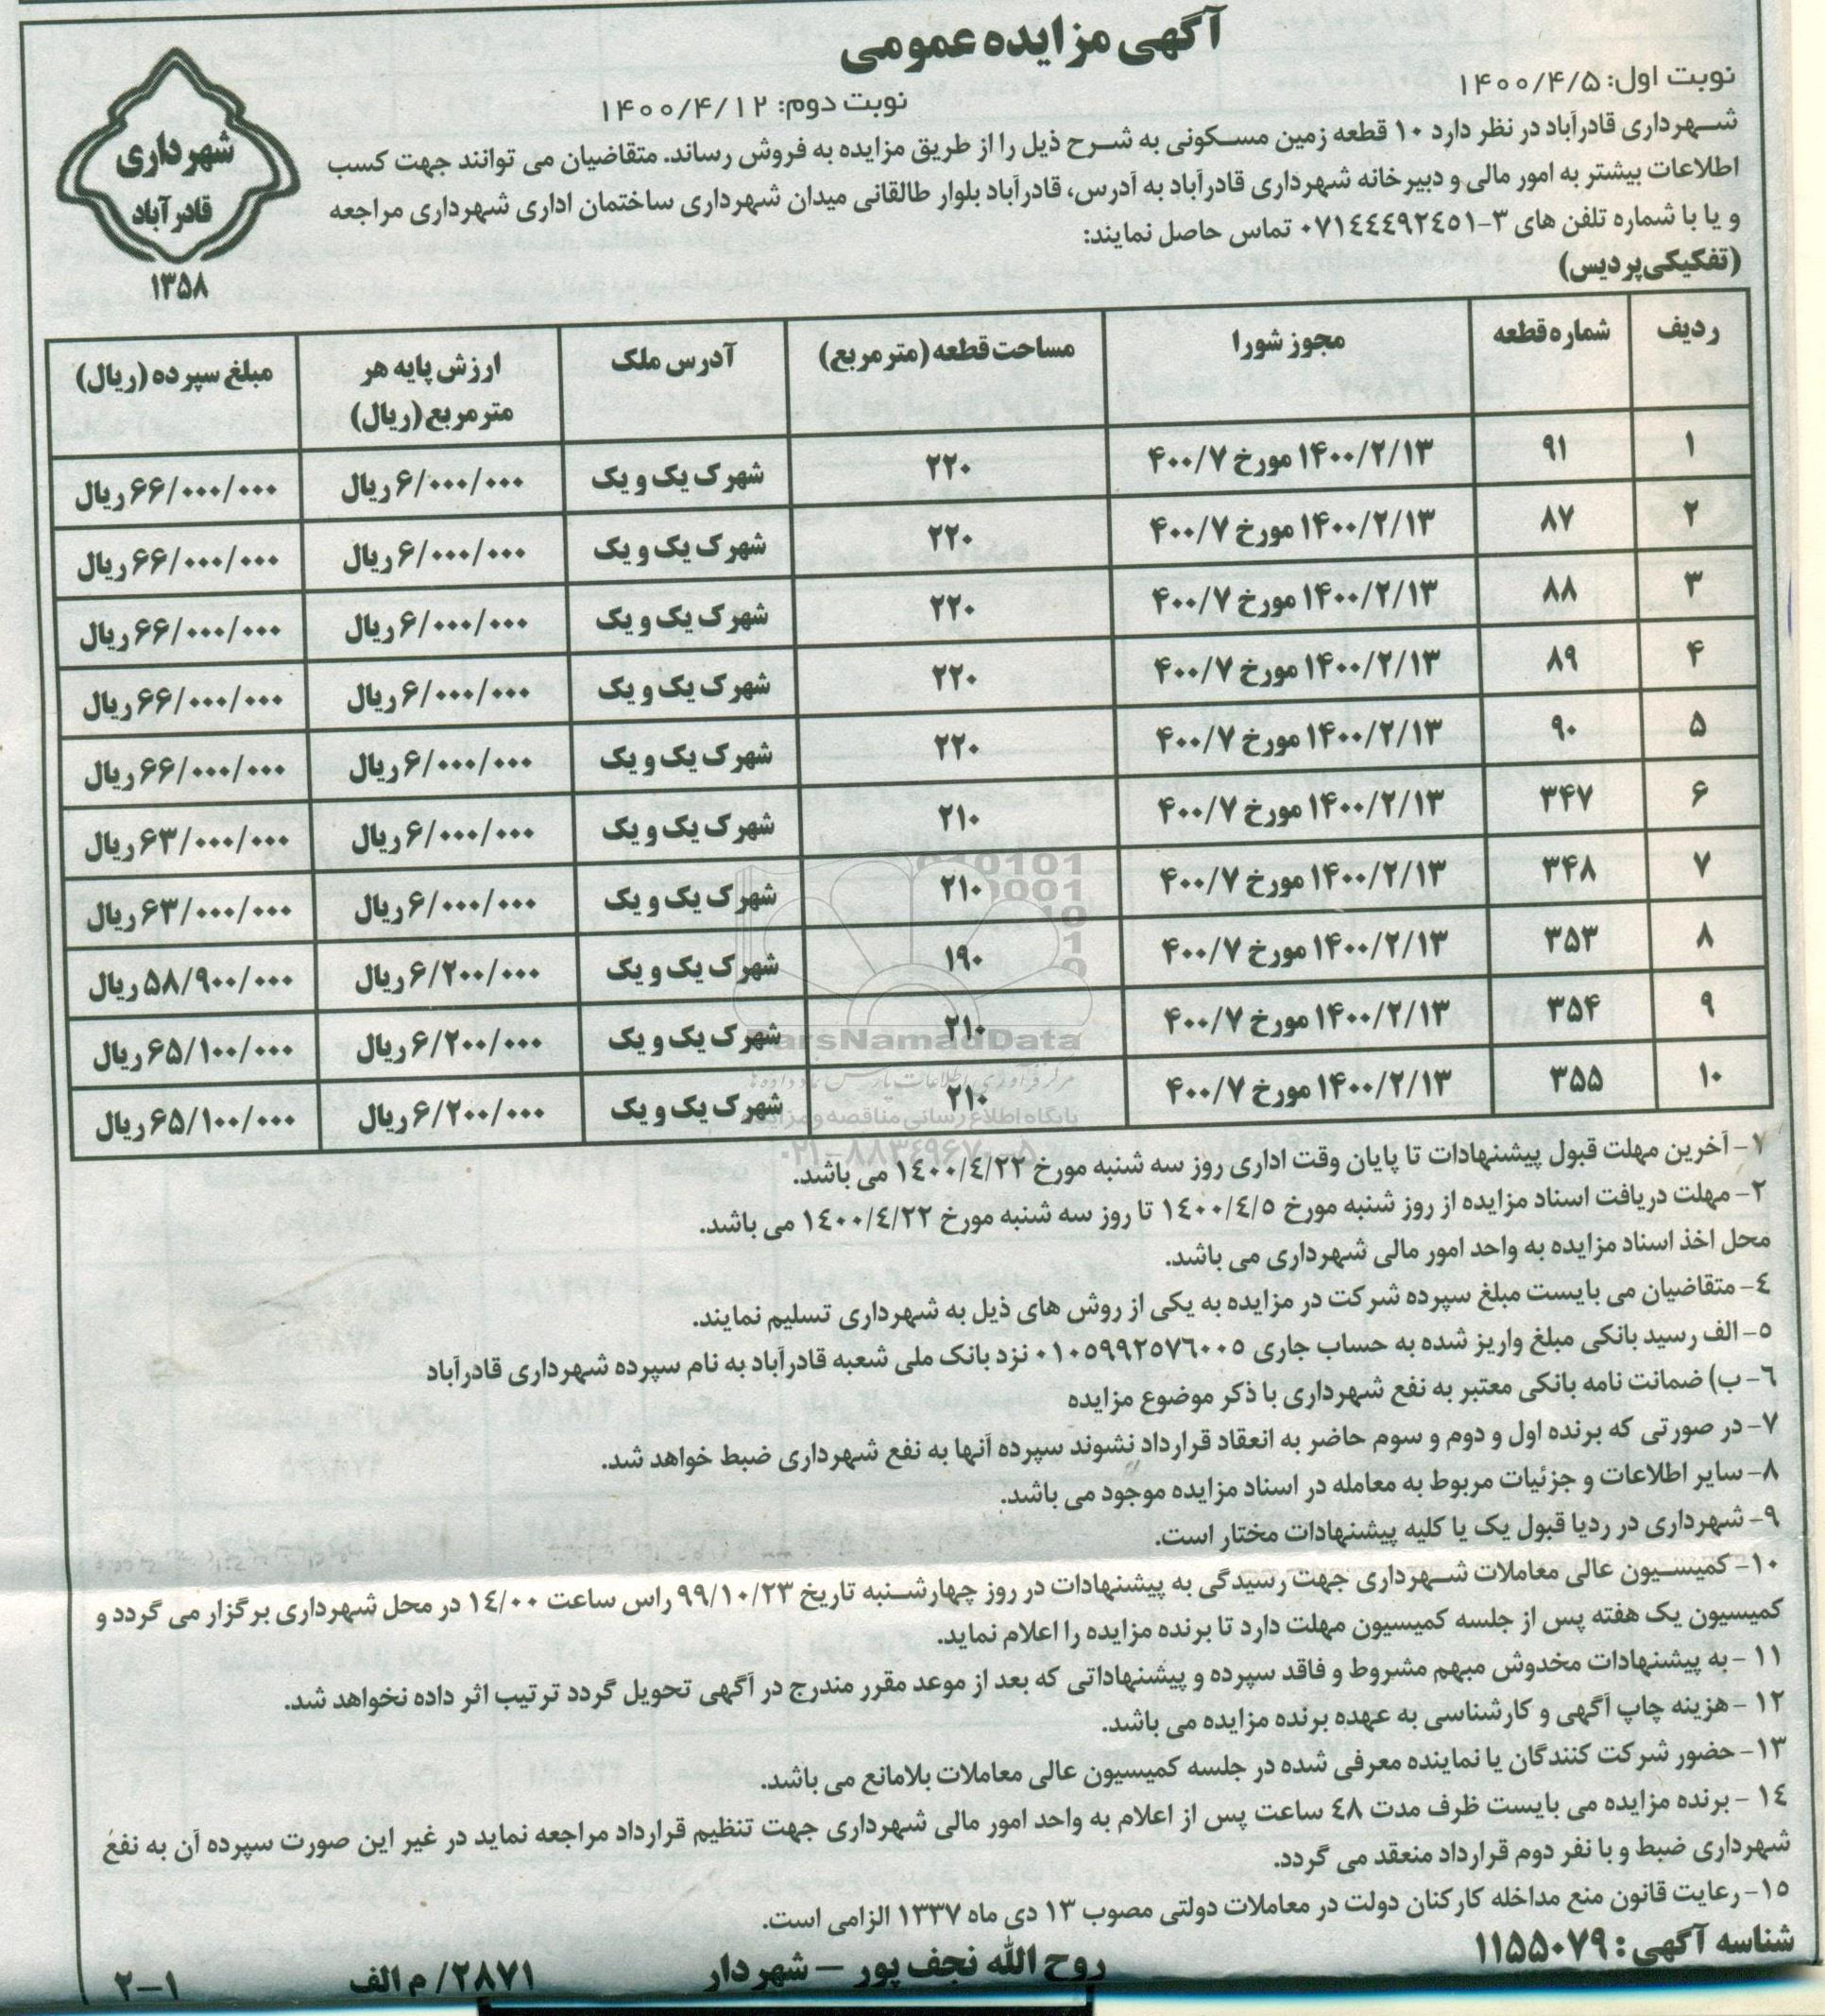 آگهی مزایده عمومی
نوبت اول: ۱۴۰۰/۴/۵
نوبت دوم: ۱۴۰۰/۴/۱۲
شهرداری
قادرآباد
۱۳۵۸
شهرداری قادرآباد در نظر دارد ۱۰ قطعه زمین مسکونی به شرح ذیل را از طریق مزایده به فروش رساند. متقاضیان می توانند جهت کسب
اطلاعات بیشتر به امور مالی و دبیرخانه شهرداری قادرآباد به آدرس، قادرآباد بلوار طالقانی میدان شهرداری ساختمان اداری شهرداری مراجعه
و یا با شماره تلفن های ۳-۰۷۱٤٤٤۹۲٤٥۱ تماس حاصل نمایند:
(تفکیکی پردیس)
ردیف شماره قطعه مجوز شورا مساحت قطعه (مترمربع) آدرس ملک ارزش پایه هر مترمربع (ریال) مبلغ سپرده (ریال)
۱ ۹۱ ۱۴۰۰/۲/۱۳ مورخ ۴۰۰/۷ ۲۲۰ شهرک یک و یک ۶/۰۰۰/۰۰۰ ریال ۶۶/۰۰۰/۰۰۰ ریال
۲ ۸۷ ۱۴۰۰/۲/۱۳ مورخ ۴۰۰/۷ ۲۲۰ شهرک یک و یک ۶/۰۰۰/۰۰۰ ریال ۶۶/۰۰۰/۰۰۰ ریال
۳ ۸۸ ۱۴۰۰/۲/۱۳ مورخ ۴۰۰/۷ ۲۲۰ شهرک یک و یک ۶/۰۰۰/۰۰۰ ریال ۶۶/۰۰۰/۰۰۰ ریال
۴ ۸۹ ۱۴۰۰/۲/۱۳ مورخ ۴۰۰/۷ ۲۲۰ شهرک یک و یک ۶/۰۰۰/۰۰۰ ریال ۶۶/۰۰۰/۰۰۰ ریال
۵ ۹۰ ۱۴۰۰/۲/۱۳ مورخ ۴۰۰/۷ ۲۲۰ شهرک یک و یک ۶/۰۰۰/۰۰۰ ریال ۶۶/۰۰۰/۰۰۰ ریال
۶ ۳۴۷ ۱۴۰۰/۲/۱۳ مورخ ۴۰۰/۷ ۲۱۰ شهرک یک و یک ۶/۰۰۰/۰۰۰ ریال ۶۳/۰۰۰/۰۰۰ ریال
۷ ۳۴۸ ۱۴۰۰/۲/۱۳ مورخ ۴۰۰/۷ ۲۱۰ شهرک یک و یک ۶/۰۰۰/۰۰۰ ریال ۶۳/۰۰۰/۰۰۰ ریال
۸ ۳۵۳ ۱۴۰۰/۲/۱۳ مورخ ۴۰۰/۷ ۱۹۰ شهرک یک و یک ۶/۲۰۰/۰۰۰ ریال ۵۸/۹۰۰/۰۰۰ ریال
۹ ۳۵۴ ۱۴۰۰/۲/۱۳ مورخ ۴۰۰/۷ ۲۱۰ شهرک یک و یک ۶/۲۰۰/۰۰۰ ریال ۶۵/۱۰۰/۰۰۰ ریال
۱۰ ۳۵۵ ۱۴۰۰/۲/۱۳ مورخ ۴۰۰/۷ ۲۱۰ شهرک یک و یک ۶/۲۰۰/۰۰۰ ریال ۶۵/۱۰۰/۰۰۰ ریال
ParsNamadData
مرکز فرآوری اطلاعات پارس نماد داده ها
پایگاه اطلاع رسانی مناقصه و مزایده
۰۲۱-۸۸۳۴۹۶۷۰-۵
۱- آخرین مهلت قبول پیشنهادات تا پایان وقت اداری روز سه شنبه مورخ ۱٤۰۰/٤/۲۲ می باشد.
۲- مهلت دریافت اسناد مزایده از روز شنبه مورخ ۱٤۰۰/٤/٥ تا روز سه شنبه مورخ ۱٤۰۰/٤/۲۲ می باشد.
محل اخذ اسناد مزایده به واحد امور مالی شهرداری می باشد.
٤- متقاضیان می بایست مبلغ سپرده شرکت در مزایده به یکی از روش های ذیل به شهرداری تسلیم نمایند.
٥- الف رسید بانکی مبلغ واریز شده به حساب جاری ۰۱۰٥۹۹۲٥۷٦۰۰٥ نزد بانک ملی شعبه قادرآباد به نام سپرده شهرداری قادرآباد
٦- ب) ضمانت نامه بانکی معتبر به نفع شهرداری با ذکر موضوع مزایده
۷- در صورتی که برنده اول و دوم و سوم حاضر به انعقاد قرارداد نشوند سپرده آنها به نفع شهرداری ضبط خواهد شد.
۸- سایر اطلاعات و جزئیات مربوط به معامله در اسناد مزایده موجود می باشد.
۹- شهرداری در ردیا قبول یک یا کلیه پیشنهادات مختار است.
۱۰- کمیسیون عالی معاملات شهرداری جهت رسیدگی به پیشنهادات در روز چهارشنبه تاریخ ۹۹/۱۰/۲۳ راس ساعت ۱٤/۰۰ در محل شهرداری برگزار می گردد و
کمیسیون یک هفته پس از جلسه کمیسیون مهلت دارد تا برنده مزایده را اعلام نماید.
۱۱ - به پیشنهادات مخدوش مبهم مشروط و فاقد سپرده و پیشنهاداتی که بعد از موعد مقرر مندرج در آگهی تحویل گردد ترتیب اثر داده نخواهد شد.
۱۲ - هزینه چاپ آگهی و کارشناسی به عهده برنده مزایده می باشد.
۱۳- حضور شرکت کنندگان یا نماینده معرفی شده در جلسه کمیسیون عالی معاملات بلامانع می باشد.
۱٤ - برنده مزایده می بایست ظرف مدت ٤۸ ساعت پس از اعلام به واحد امور مالی شهرداری جهت تنظیم قرارداد مراجعه نماید در غیر این صورت سپرده آن به نفع
شهرداری ضبط و با نفر دوم قرارداد منعقد می گردد.
۱٥- رعایت قانون منع مداخله کارکنان دولت در معاملات دولتی مصوب ۱۳ دی ماه ۱۳۳۷ الزامی است.
شناسه آگهی: ۱۱۵۵۰۷۹
روح الله نجف پور – شهردار
۲۸۷۱/ م الف
۲-۱